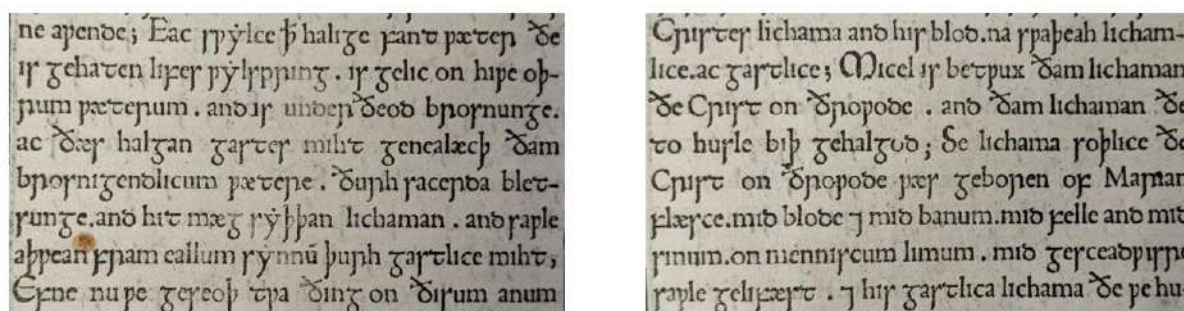 ne aƿende; Eac sƿẏlce ꝥ halige fant ƿæter ðe
is gehaten lifes ƿẏlspring. is gelic on hiƿe oþ-
rum ƿæterum. and is under ðeod brosnunge.
ac ðæs halgan gastes miht genealæcþ ðam
brosnigendlicum ƿætere. ðurh sacerda blet-
sunge. and hit mæg sẏþþan lichaman. and saƿle
aþƿean fram eallum sẏnnū þurh gastlice miht;
Efne nu ƿe geseoþ tƿa ðing on ðisum anum
Cristes lichama and his blod. na sƿaþeah licham-
lice. ac gastlice; Micel is betƿux ðam lichaman
ðe Crist on ðroƿode. and ðam lichaman ðe
to husle biþ gehalgod; Se lichama soþlice ðe
Crist on ðroƿode ƿæs geboren of Marian
flæsce. mid blode ⁊ mid banum. mid felle and mid
sinum. on menniscum limum. mid gesceadƿisre
saƿle gelifæst. ⁊ his gastlica lichama ðe ƿe hu-